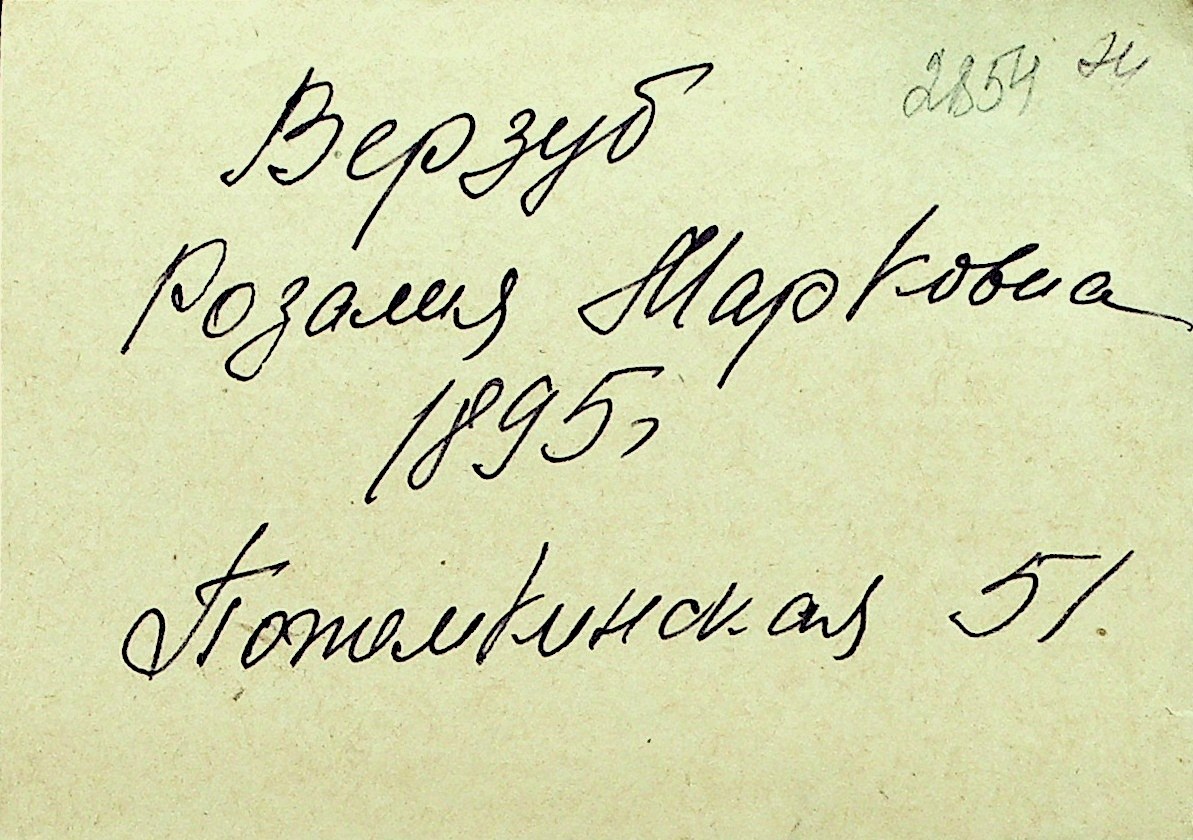 2854
Верзуб
Розалия Марковна
1895г
Потемкинская 51